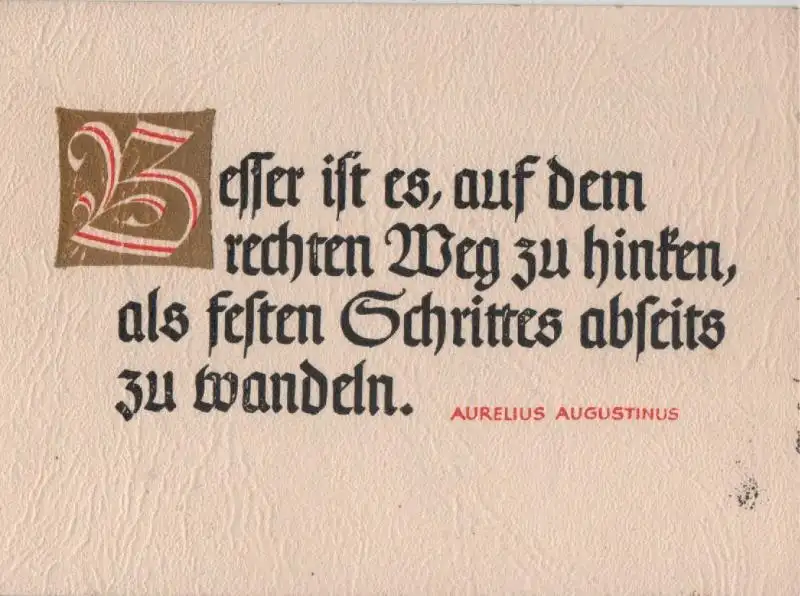 Besser ist es, auf dem
rechten Weg zu hinken,
als festen Schrittes abseits
zu wandeln. AURELIUS AUGUSTINUS